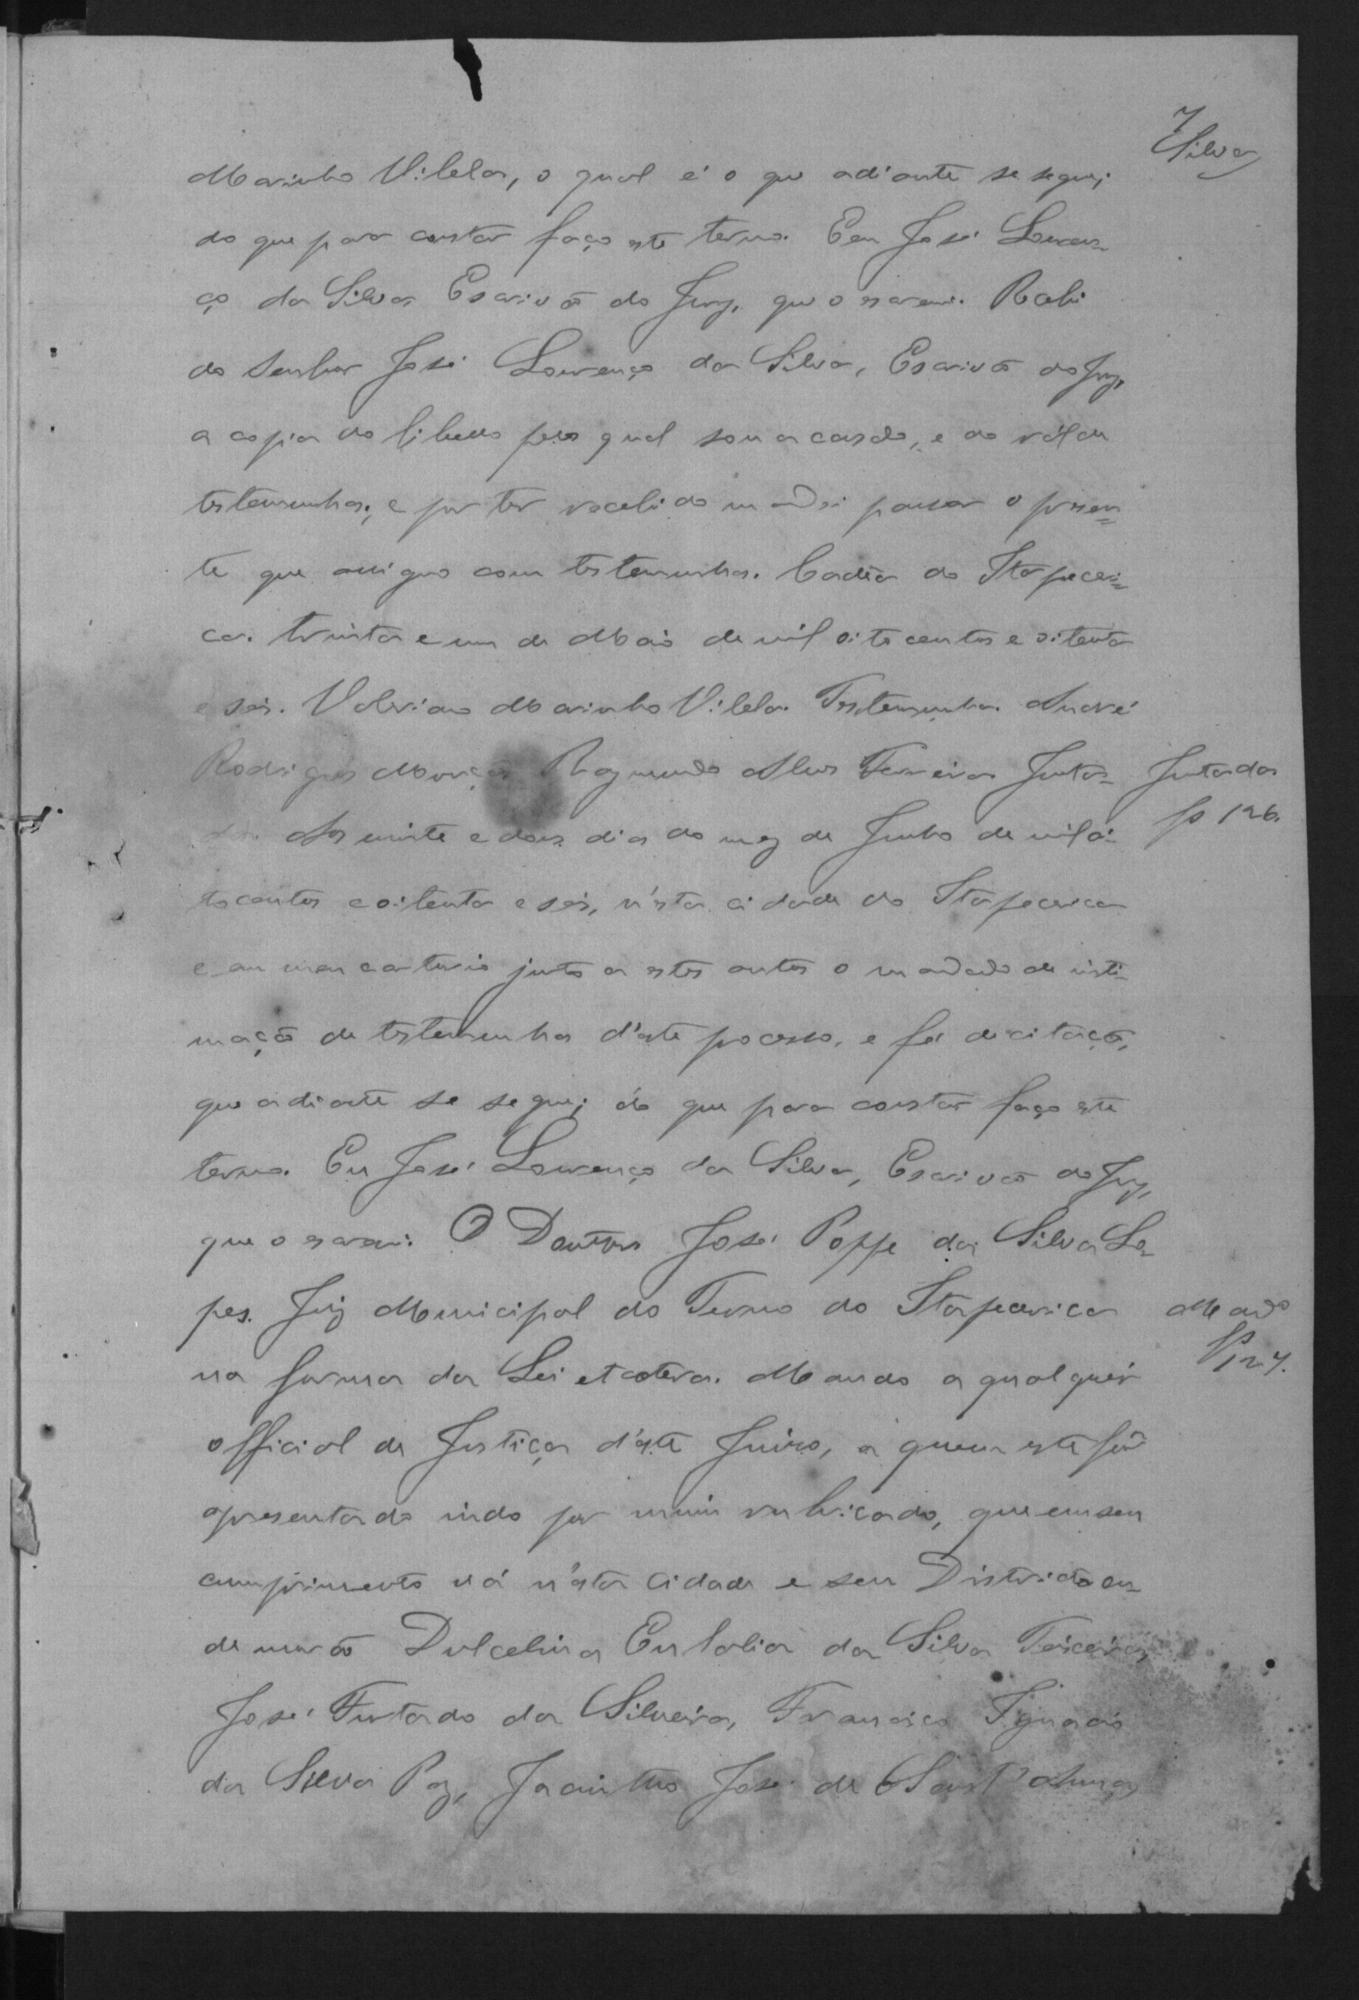 7
Silva
Marinho Vilela, o qual é o que adiante se segue;
do que para constar faço este termo. Eu José Louren-
ço da Silva Escrivão do Jury, que o escrevi. Recebi
do Senhor José Lourenço da Silva, Escrivão do Jury,
a copia do libello pelo qual sou accusado, e do ról da
testemunhas, e por ter recebido mandei passar o presen-
te que assigno com testemunhas. Cadêa do Itapeceri-
ca. trinta e um de Maio de mil oito centos e oitenta
e seis. Valeriano Marinho Vilela. Testemunha. André
Rodrigues Raymundo Alves Ferreira Junta-
da. Aos vinte e dous dias do mez de Junho de mil oi-
tocentos e oitenta e seis, n'esta cidade do Itapecerica
e em meu cartorio junto a estes autos o mandado de inti-
mação de testemunhas d'este pocesso, e fé de citação,
que adiante se segue; do que para constar faço este
termo. Eu José Lourenço da Silva, Escrivão do Jury,
que o escrevi. O Doutor José Poppe da Silva Lo-
pes. Juiz Municipal do Termo do Itapecerica
na forma da Lei etcetera. Mando a qualquér
official de Justiça d'este Juizo, a quem este fôr
apresentado indo por mim rubricado, que em seu
cumprimento vá n'esta Cidade e seu Districto on-
de morão Dulcelina Eulalia da Silva Teixeira,
José Furtado da Silveira, Francisco Ignacio
da Silva Paz, Jacintho José de Sant'Anna,
Juntada
fs 126.
Mando
fs 127.